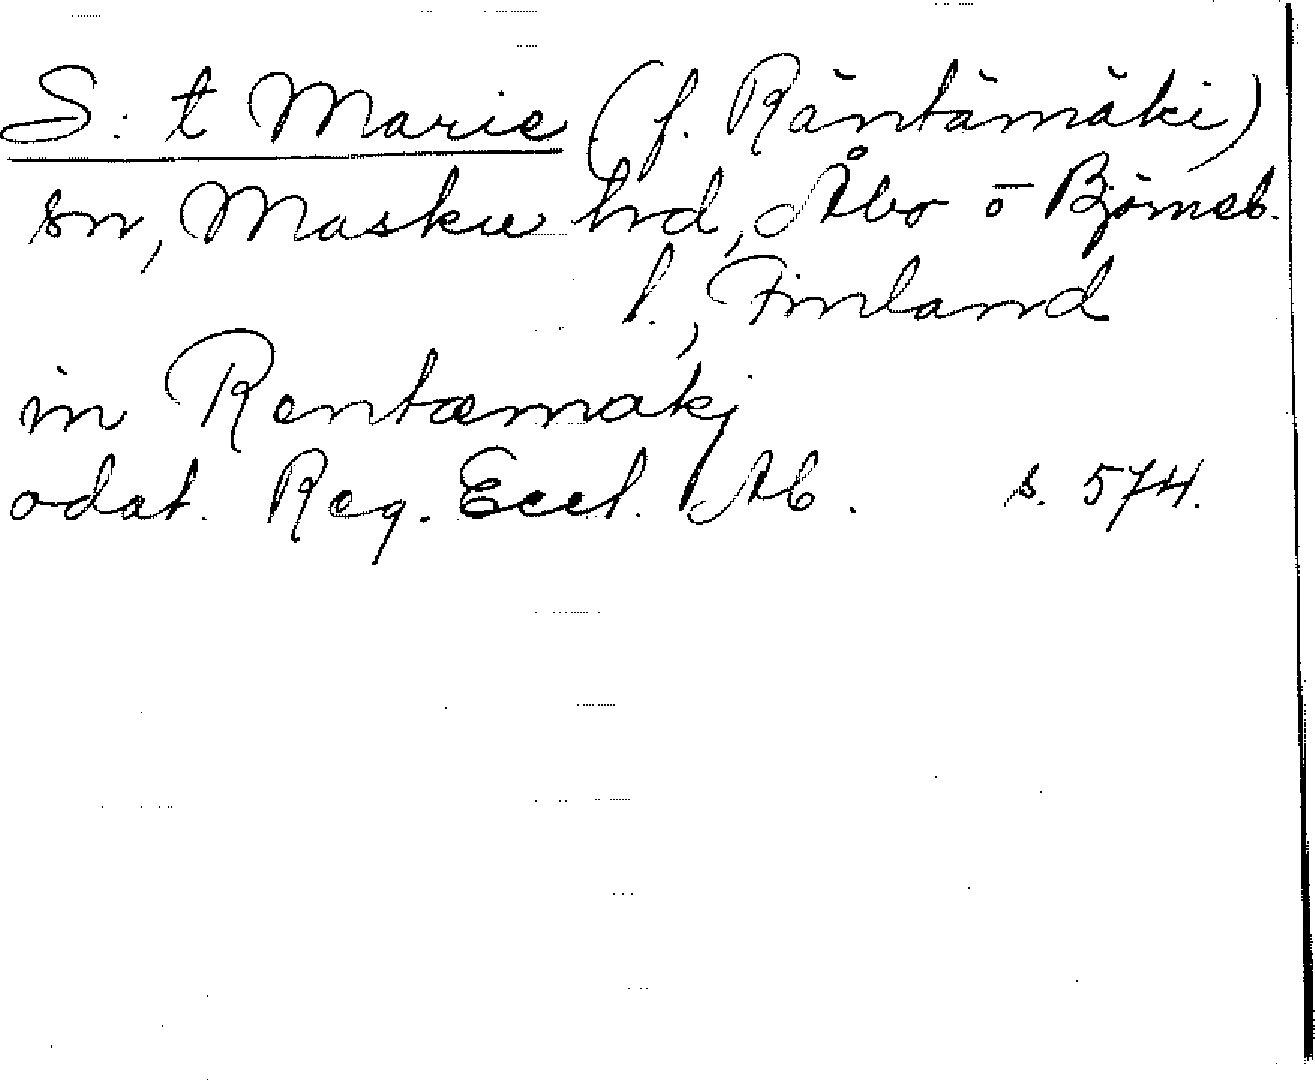 S:t Marie (f. Räntämäki)
sn, Masku hrd, Åbo o Björneb.
l., Finland
in Rentæmakj
odat. Reg. Eccl. Ab. s. 574.